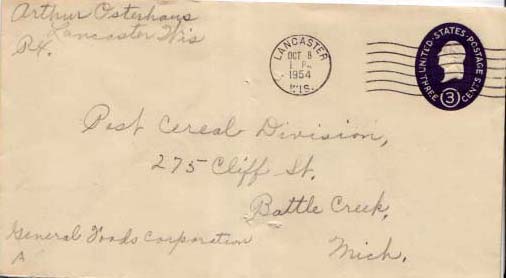 Arthur Osterhaus
Lancaster Wis
R4.
LANCASTER
OCT 8
1 P
1954
WIS.
UNITED·STATES·POSTAGE
THREE 3 CENTS
Post Cereal Division,
275 Cliff St.
Battle Creek,
Mich.
General Foods Corporation
A